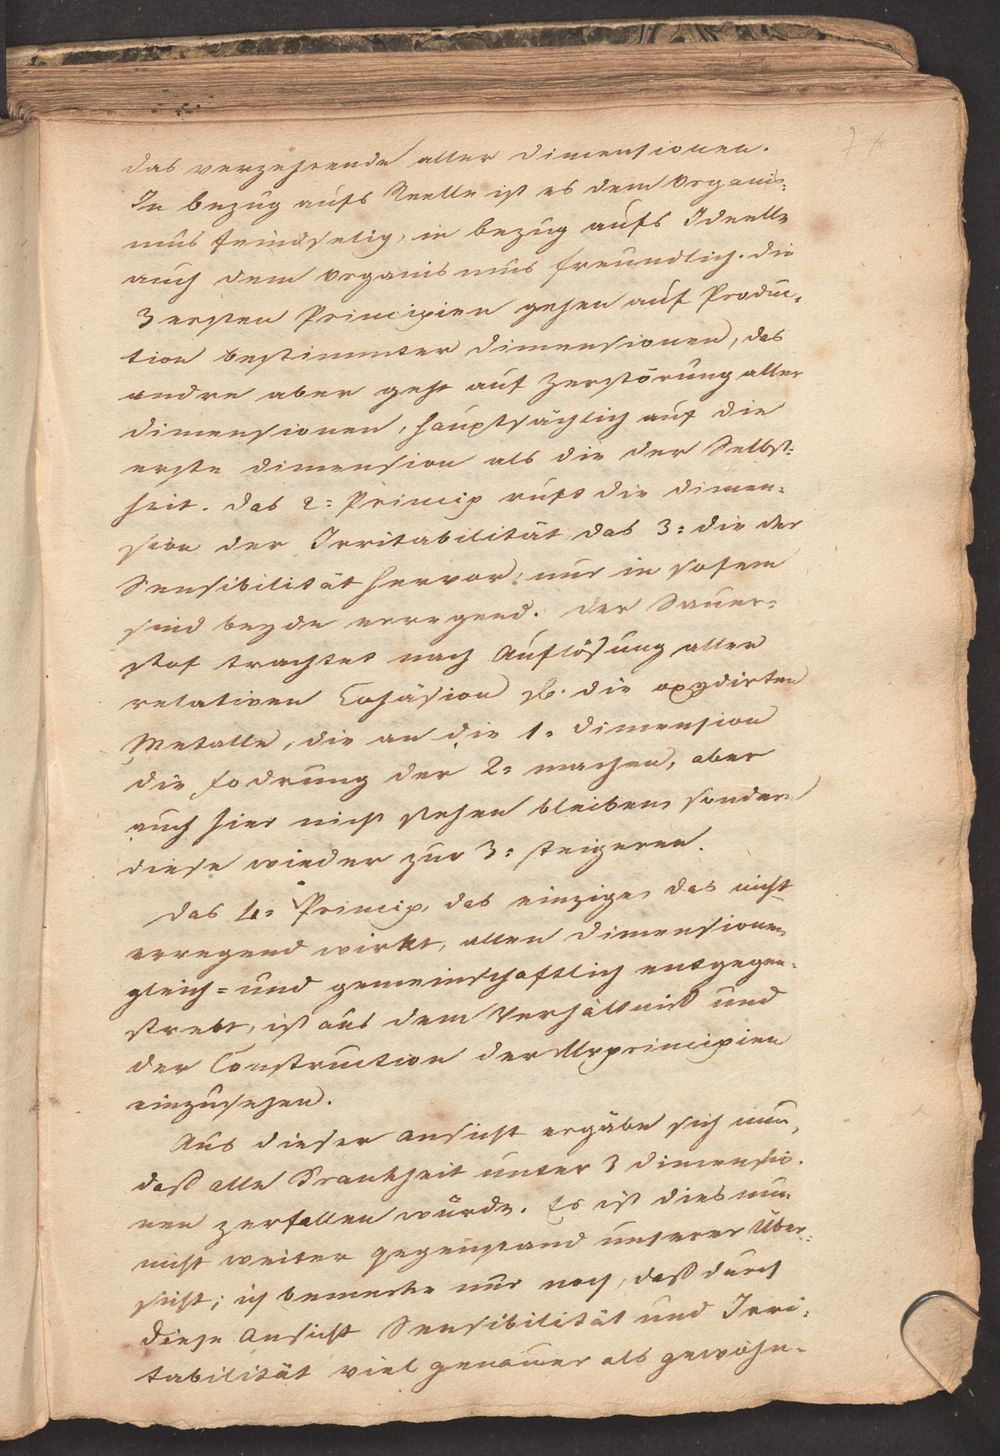 das verzehrende aller Dimensionen.
In bezug aufs Reelle ist es dem Organis=
mus feindselig, in bezug aufs Ideelle
auch dem Organismus freundlich. die
3 ersten Principien gehen auf Produc=
tion bestimmter Dimensionen, das
andre aber geht auf Zerstörung aller
Dimensionen, hauptsächlich auf die
erste Dimension als die der Selbst=
heit. das 2= Princip ruft die Dimen=
sion der Irritabilität das 3= die der
Sensibilität hervor; nur in sofern
sind beyde erregend. der Sauer=
stof trachtet nach Auflösung aller
relativen Cohäsion die oxydirten
Metalle, die an die 1= Dimension
die fodrung der 2= machen, aber
auch hier nicht stehen bleiben sondern
diese wieder zur 3= steigeren.
das 4= Princip, das einzige, das nicht
erregend wirkt, allen Dimensionen
gleich= und gemeinschaftlich entgegen=
strebt, ist aus dem Verhältniß und
der Construction der Urprincipien
einzusehen.
Aus dieser Ansicht ergäbe sich nun,
daß alle Krankheit unter 3 Dimensio=
nen zerfallen würde. Es ist dies nun
nicht weiter gegenstand unserer Über=
sicht; ich bemerke nur noch, daß durch
diese Ansicht Sensibilität und Irri=
tabilität viel genauer als gewöhn=